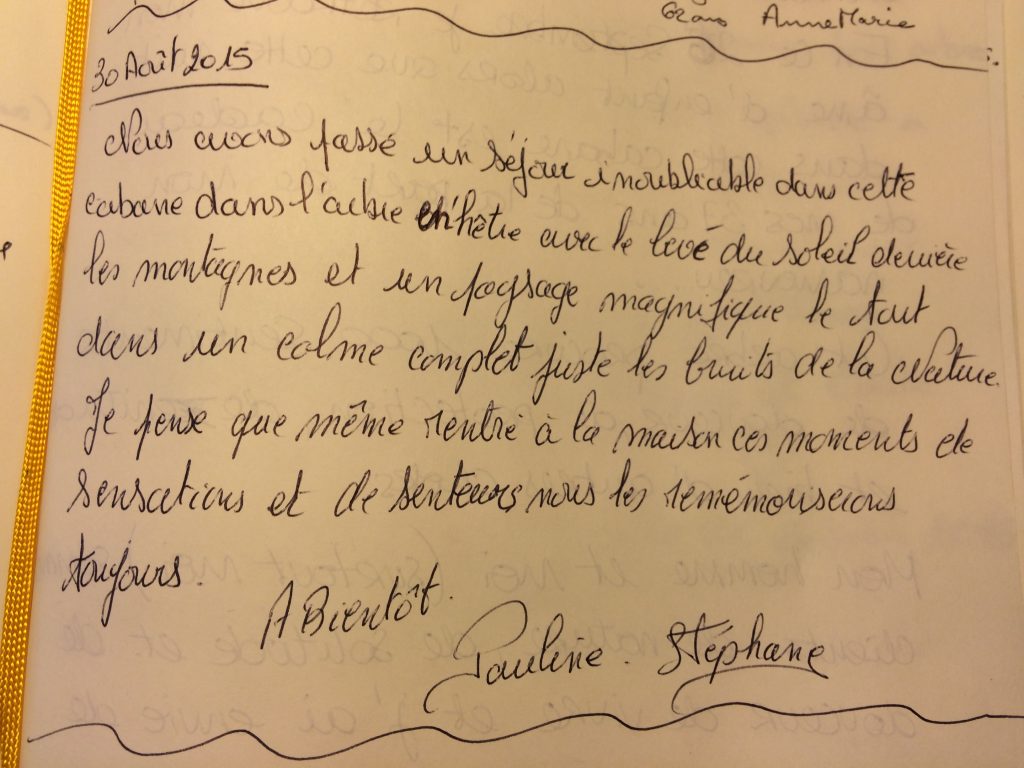 62 ans AnneMarie
30 Août 2015
Nous avons passé un séjour inoubliable dans cette
cabane dans l'arbre en hêtre avec le levé du soleil derrière
les montagnes et un paysage magnifique le tout
dans un calme complet juste les bruits de la Nature.
Je pense que même rentré à la maison ces moments de
sensations et de senteurs nous les remémoiserons
toujours.
A Bientôt.
Pauline. Stéphane